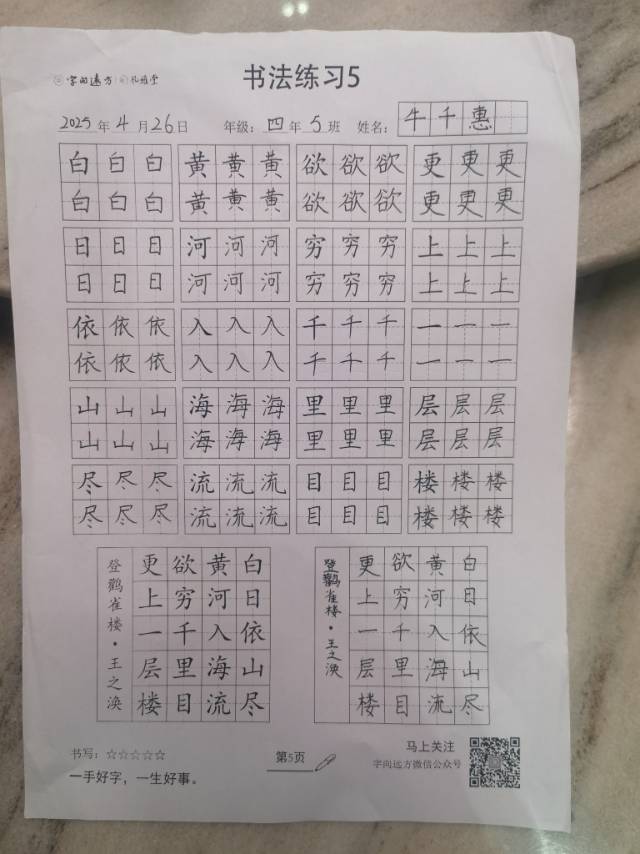 字向远方
书法练习5
2025年4月26日 年级：四年5班 姓名：牛千惠
白白白 黄黄黄 欲欲欲 更更更
白白白 黄黄黄 欲欲欲 更更更
日日日 河河河 穷穷穷 上上上
日日日 河河河 穷穷穷 上上上
依依依 入入入 千千千 一一一
依依依 入入入 千千千 一一一
山山山 海海海 里里里 层层层
山山山 海海海 里里里 层层层
尽尽尽 流流流 目目目 楼楼楼
尽尽尽 流流流 目目目 楼楼楼
白日依山尽
黄河入海流
欲穷千里目
更上一层楼
登鹳雀楼·王之涣
白日依山尽
黄河入海流
欲穷千里目
更上一层楼
登鹳雀楼·王之涣
书写：☆☆☆☆☆
一手好字，一生好事。
第5页
马上关注
字向远方微信公众号